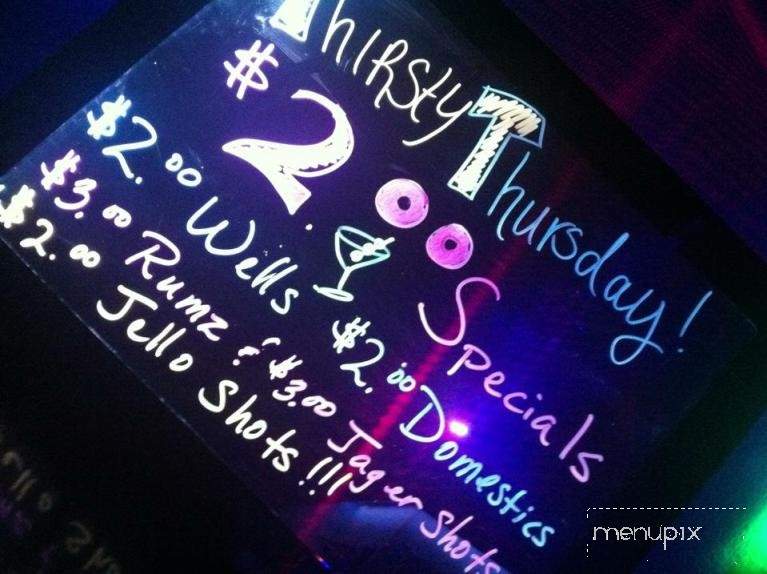 Thirsty Thursday!
$2.00 Specials
$2.00 Wells $2.00 Domestics
$3.00 Rumz & $3.00 Jager Shots
$2.00 Jello Shots!!!
menupix